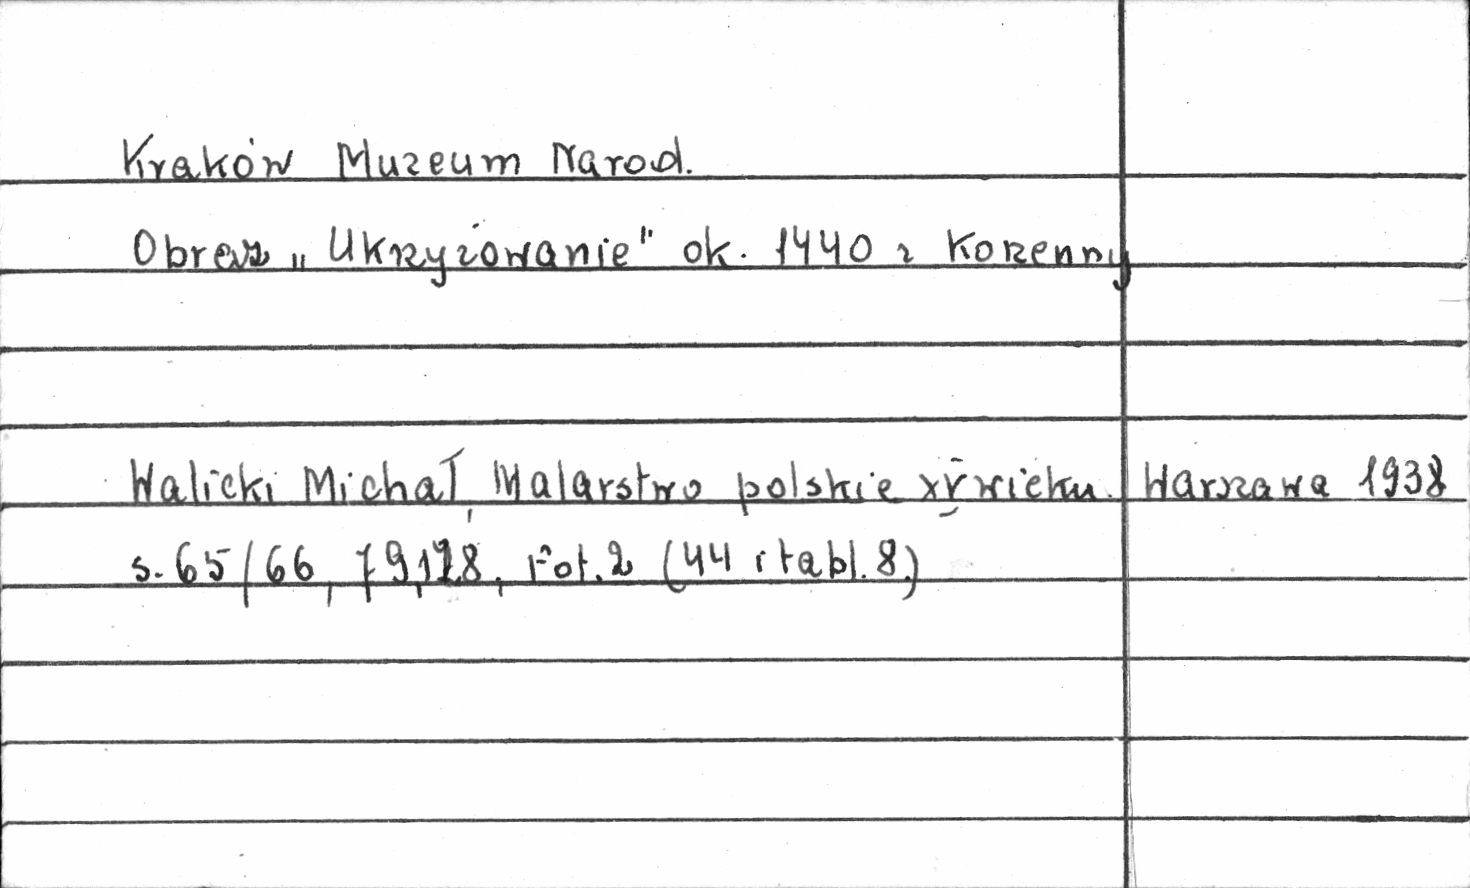 Kraków Muzeum Narod.
Obraz „Ukrzyżowanie" ok. 1440 z Korzennej
Walicki Michał, Malarstwo polskie XV wieku. Warszawa 1938
s. 65/66, 79, 128, Fot. 2 (44 i tabl. 8.)